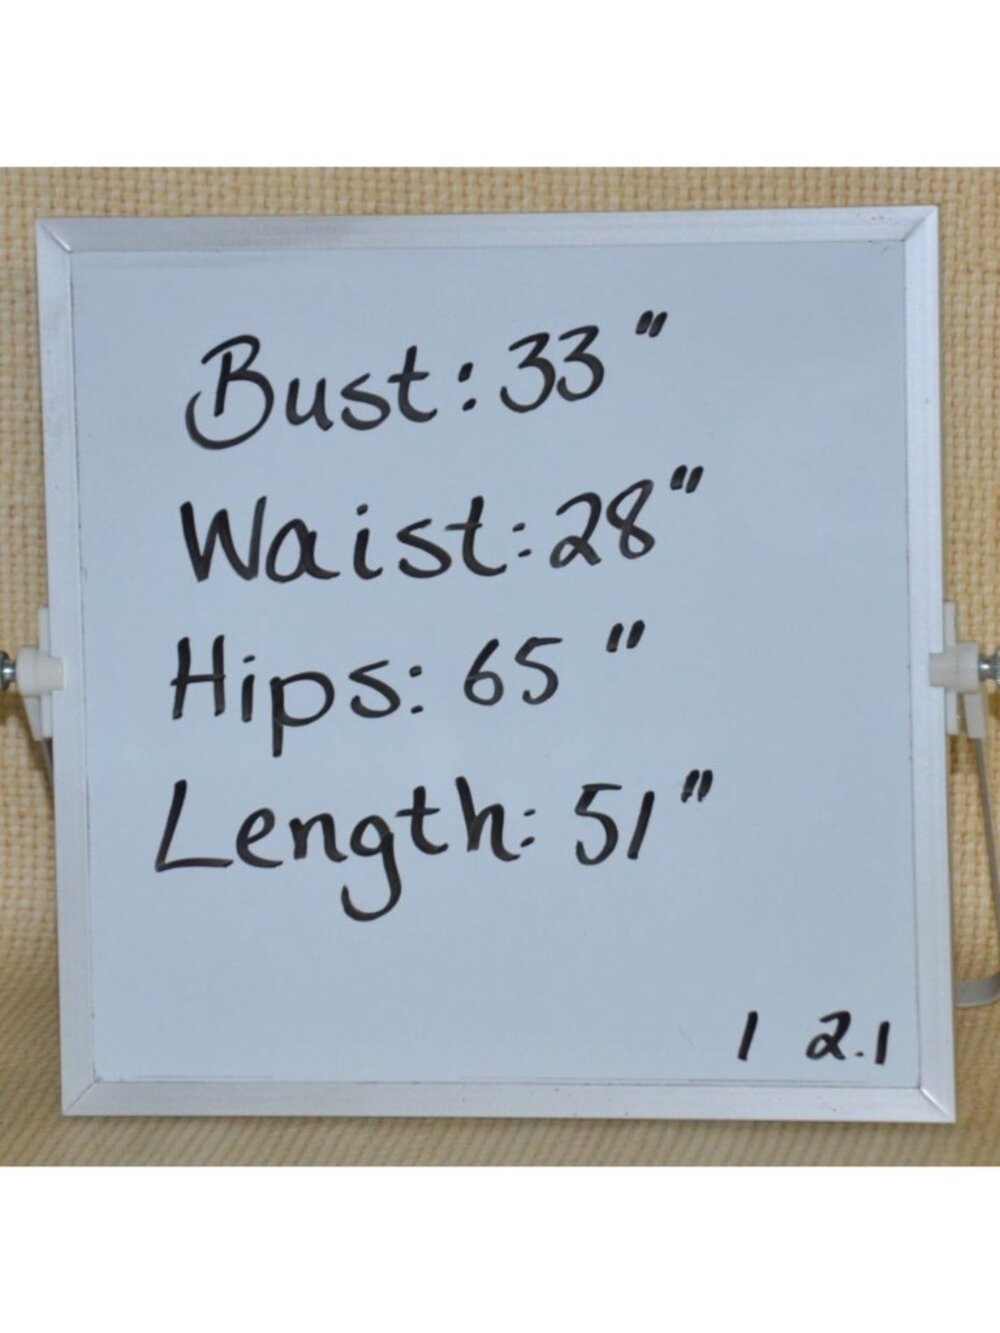 Bust: 33"
Waist: 28"
Hips: 65"
Length: 51"
1 2.1